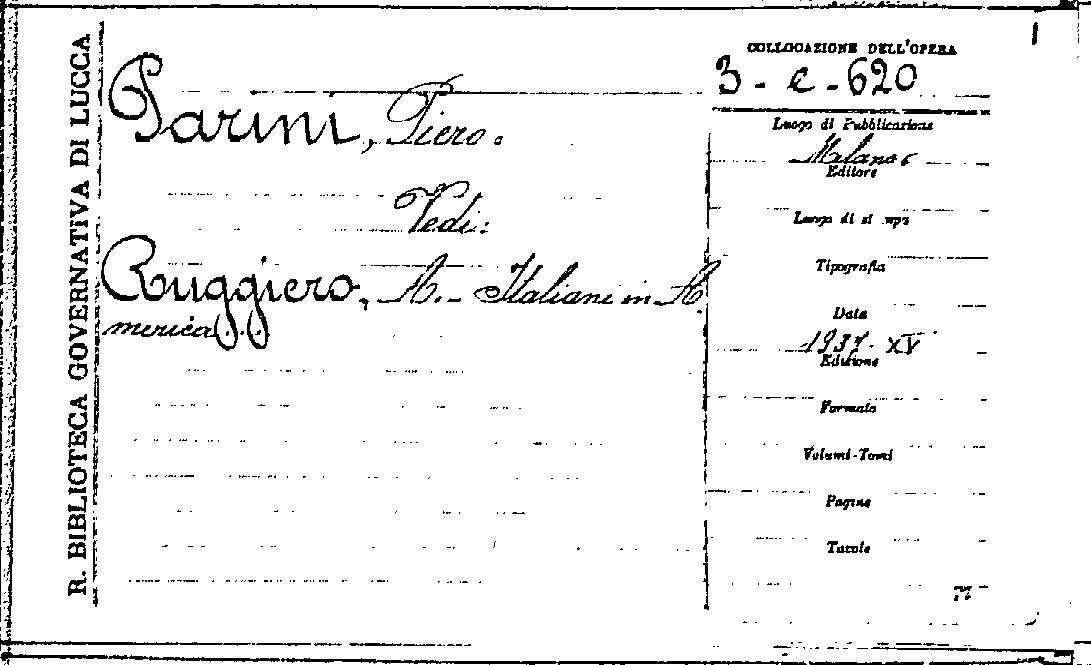 R. BIBLIOTECA GOVERNATIVA DI LUCCA
Parini, Piero.
Vedi:
Ruggiero, A. - Italiani in A
merica.
COLLOCAZIONE DELL'OPERA
3 - C - 620
Luogo di Pubblicazione
Milano
Editore
Luogo di st mpa
Tipografia
Data
1937 - XV
Edizione
Formato
Volumi-Tomi
Pagine
Tavole
77